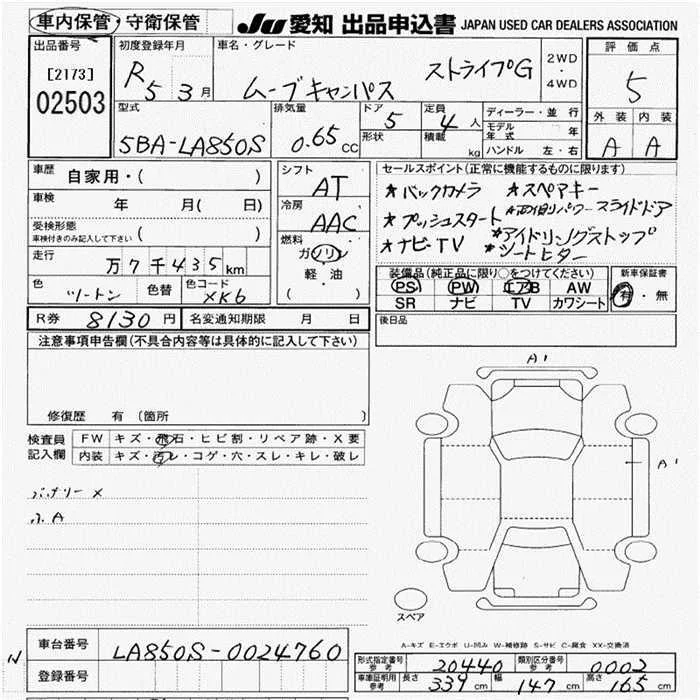 車内保管・守衛保管 JU 愛知 出品申込書 JAPAN USED CAR DEALERS ASSOCIATION
出品番号 初度登録年月 車名・グレード 2WD・4WD 評価点
[2173] R5 3月 ムーブキャンパス ストライプG 5
02503
型式 排気量 ドア 定員 ディーラー・並行 外装 内装
5BA-LA850S 0.65cc 5 4人 モデル年式 年
形状 積載 kg ハンドル 左・右 A A
車歴 自家用・( ) シフト AT セールスポイント(正常に機能するものに限ります)
車検 年 月( 日) 冷房 AAC ★バックカメラ ★スペアキー
受検形態 ( ) ★プッシュスタート ★両側パワースライドドア
車検付きのみ記入して下さい
燃料 ★ナビTV ★アイドリングストップ
走行 万7千435km ガソリン ★シートヒター
軽・油
( )
色 ツートン 色替 色コード XK6
装備品(純正品に限り○をつけてください) 新車保証書
PS PW エアB AW 有・無
SR ナビ TV カワシート
R券 8130円 名変通知期限 月 日 後日品
注意事項申告欄(不具合内容等は具体的に記入して下さい)
修復歴 有 (箇所 )
A1
検査員記入欄 FW キズ・飛石・ヒビ割・リペア跡・X要
内装 キズ・汚レ・コゲ・穴・スレ・キレ・破レ
A1
A
スペア
A-キズ E-エクボ U-凹み W-補修跡 S-サビ C-腐食 XX-交換済
車台番号 LA850S-0024760
登録番号
型式指定番号 参考 20440 類別区分番号 参考 0002
車庫証明用 参考 長さ 339cm 幅 147cm 高さ 165cm